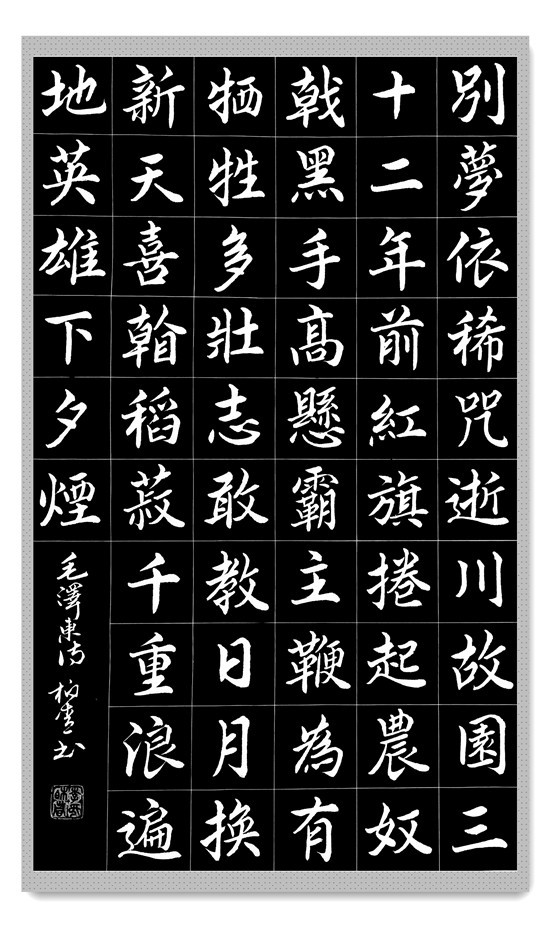 別夢依稀咒逝川故園三
十二年前紅旗捲起農奴
戟黑手高懸霸主鞭為有
牺牲多壯志敢教日月換
新天喜稻菽千重浪遍
地英雄下夕煙
毛澤東詩 书